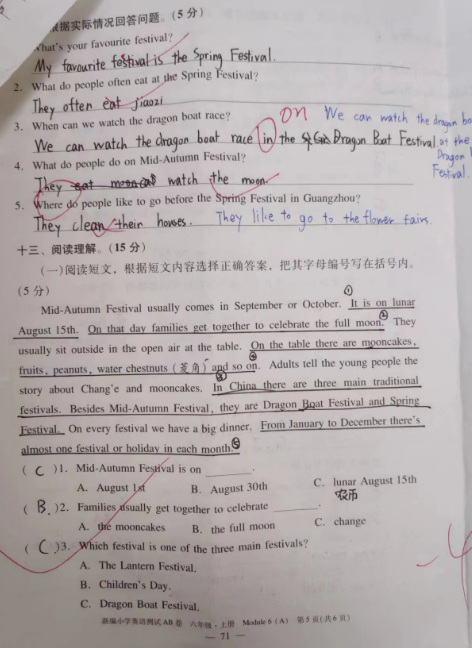 根据实际情况回答问题。(5分)
What's your favourite festival?
My favourite festival is the Spring Festival.
2. What do people often eat at the Spring Festival?
They often eat jiaozi
3. When can we watch the dragon boat race?
on We can watch the dragon
We can watch the dragon boat race in the Dragon Boat Festival. at the
Dragon
Festival.
4. What do people do on Mid-Autumn Festival?
They watch the moon.
5. Where do people like to go before the Spring Festival in Guangzhou?
They clean their houses. They like to go to the flower fairs.
十三、阅读理解。(15分)
(一)阅读短文，根据短文内容选择正确答案，把其字母编号写在括号内。
(5分)
Mid-Autumn Festival usually comes in September or October. It is on lunar ①
August 15th. On that day families get together to celebrate the full moon. ② They
usually sit outside in the open air at the table. On the table there are mooncakes,
fruits, peanuts, water chestnuts (菱角) and so on. ③ Adults tell the young people the
story about Chang'e and mooncakes. ④ In China there are three main traditional
festivals. Besides Mid-Autumn Festival, they are Dragon Boat Festival and Spring
Festival. On every festival we have a big dinner. From January to December there's
almost one festival or holiday in each month. ⑤
( C )1. Mid-Autumn Festival is on ______.
A. August 1st B. August 30th C. lunar August 15th
农历
( B. )2. Families usually get together to celebrate ______.
A. the mooncakes B. the full moon C. change
( C )3. Which festival is one of the three main festivals?
A. The Lantern Festival.
B. Children's Day.
C. Dragon Boat Festival.
-4
新编小学英语测试AB卷 六年级·上册 Module 6 (A) 第5页(共6页)
— 71 —